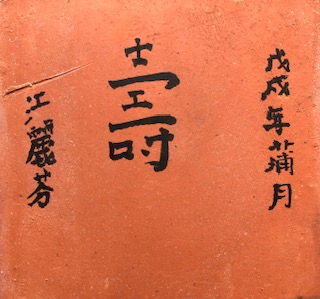 戊戌年蒲月
壽
江麗芬